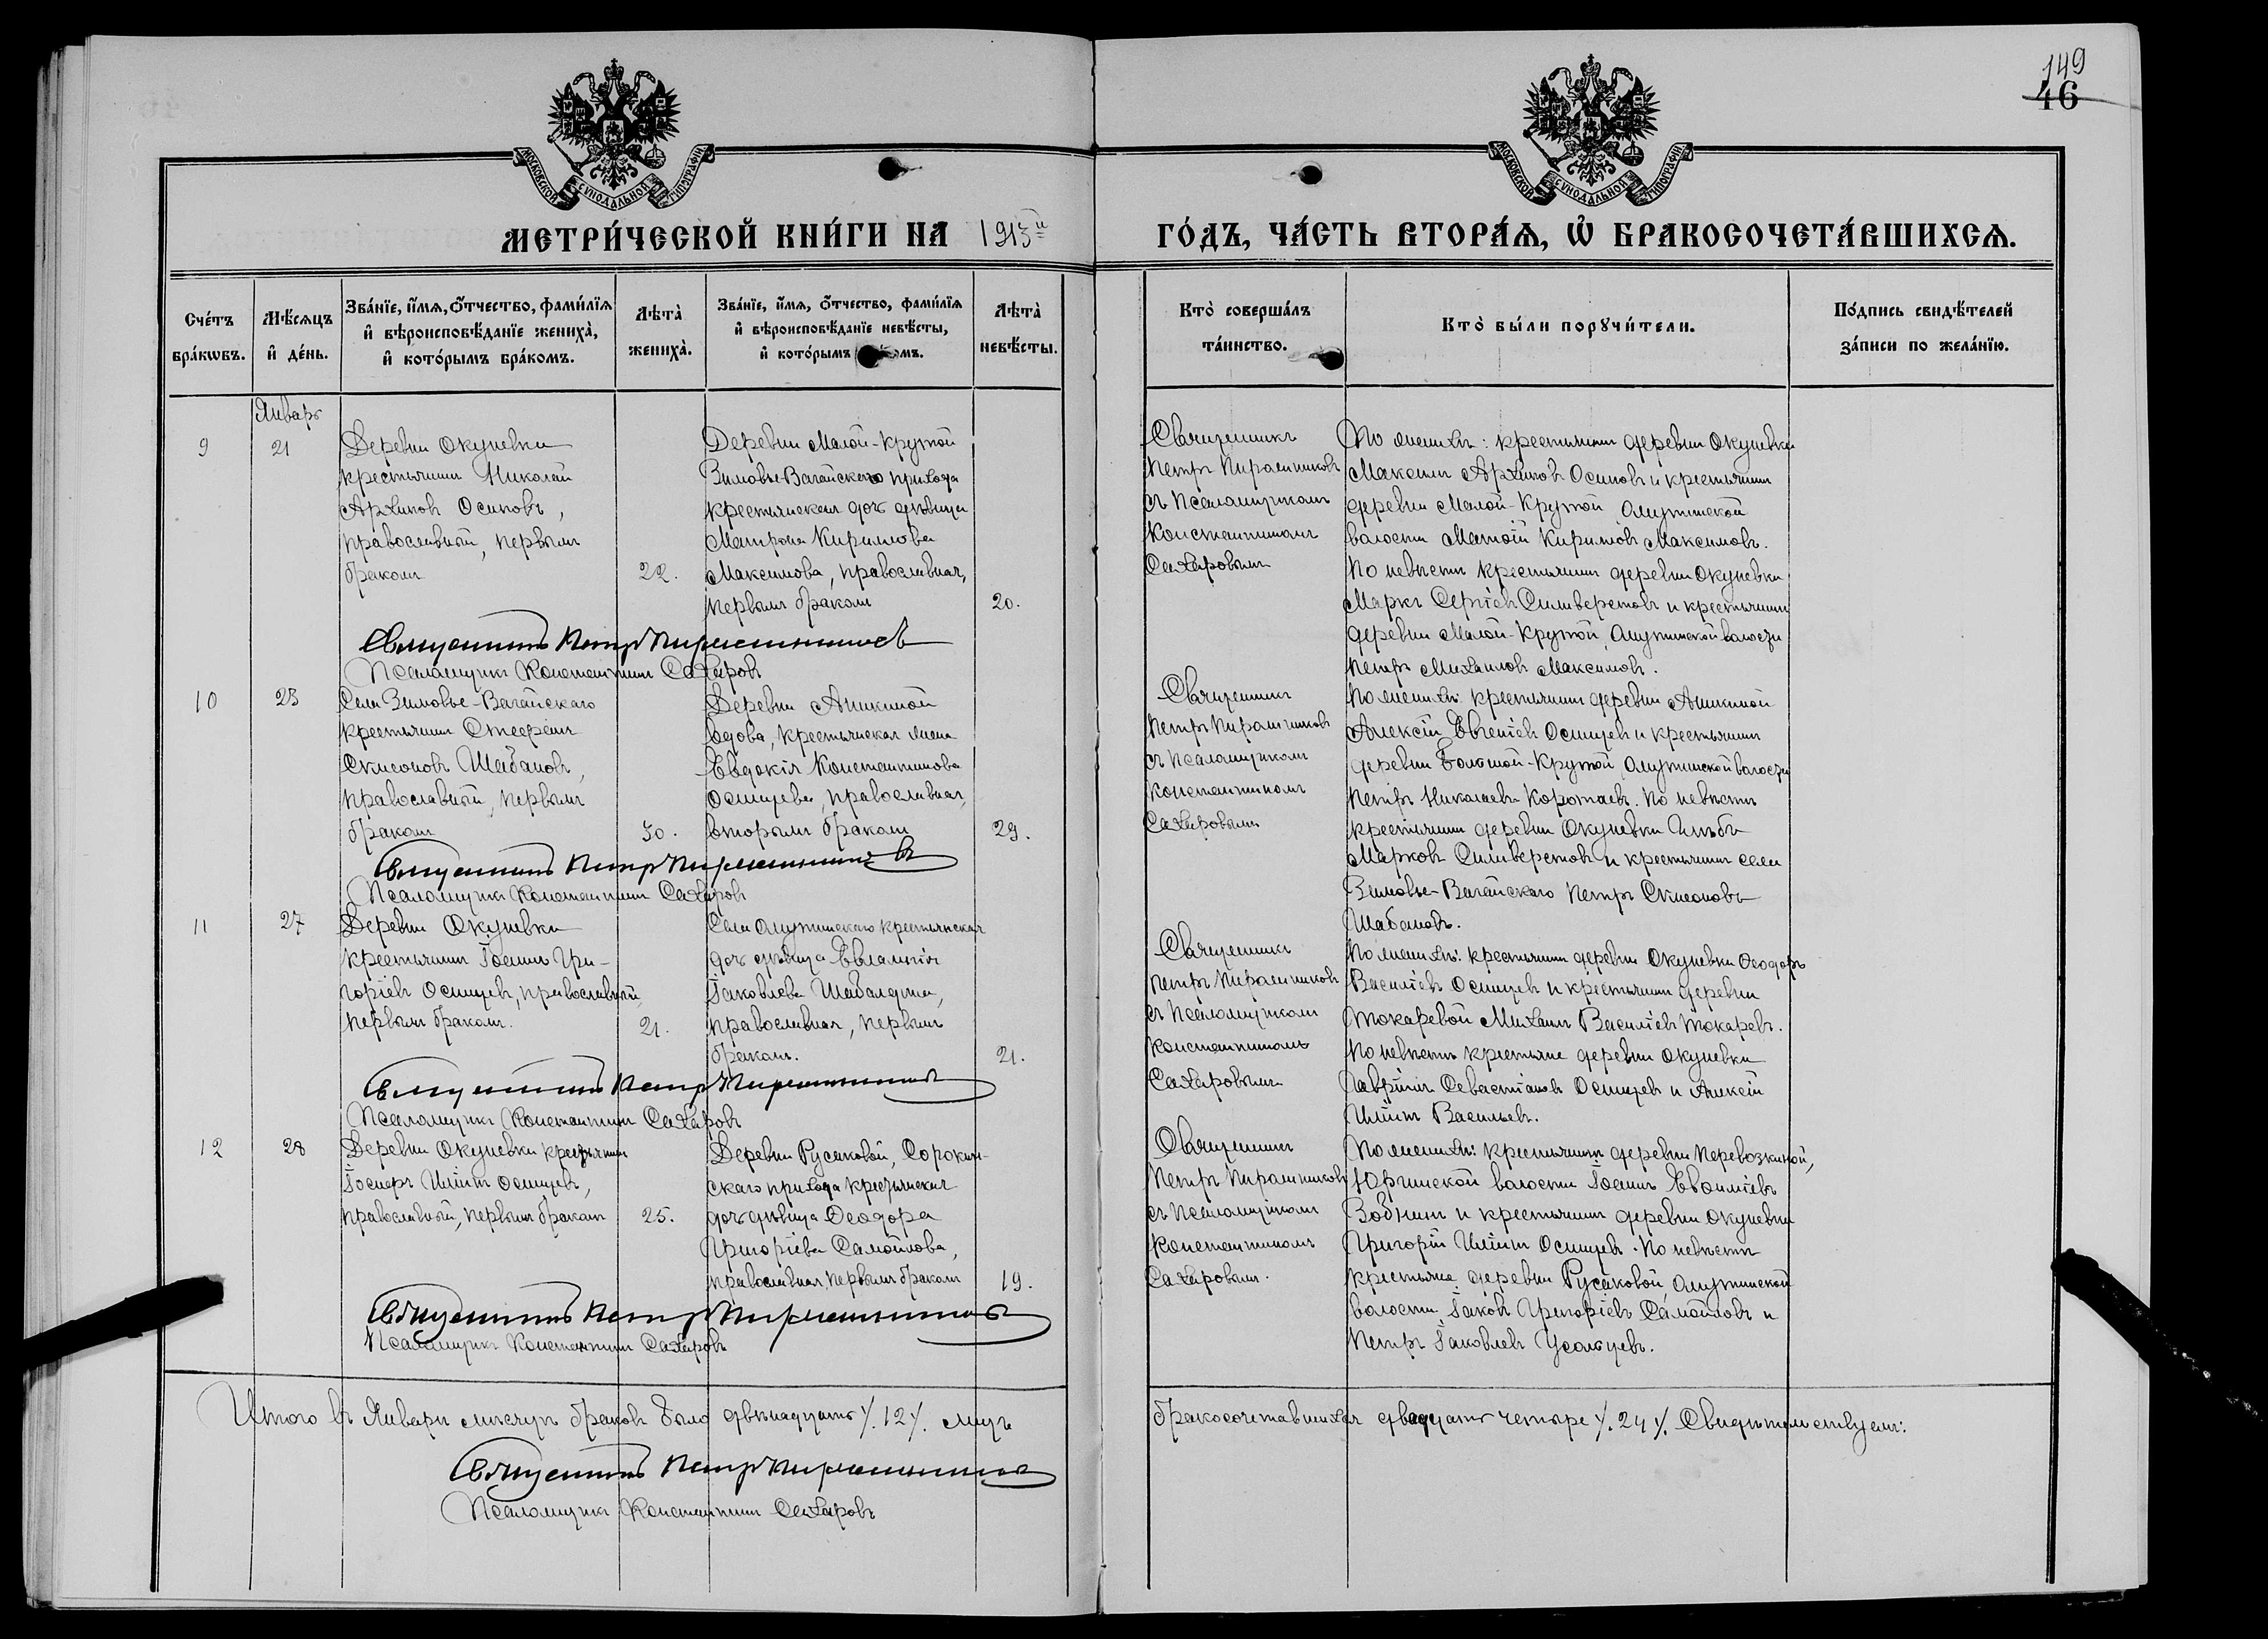 149
46
МОСКОВСКОЙ СѴНОДАЛЬНОЙ ТИПОГРАФІИ
МОСКОВСКОЙ СѴНОДАЛЬНОЙ ТИПОГРАФІИ
МЕТРИ́ЧЕСКОЙ КНИ́ГИ НА 1913й
ГО́ДЪ, ЧА́СТЬ ВТОРА́Ѧ, Ѡ҆ БРАКОСОЧЕТА́ВШИХСѦ.
Сче́тъ бра́кωвъ.
Мѣ́сѧцъ и҆ де́нь.
Зва́нїе, и҆́мѧ, ѻ҆́тчество, фами́лїѧ
и҆ вѣроисповѣ́данїе жениха̀,
и҆ кото́рымъ бра́комъ.
Лѣта̀ жениха̀.
Зва́нїе, и҆́мѧ, ѻ҆́тчество, фами́лїѧ
и҆ вѣроисповѣ́данїе невѣ́сты,
и҆ кото́рымъ
Лѣта̀ невѣ́сты.
Кто̀ соверша́лъ та́инство.
Кто̀ бы́ли порꙋчи́тели.
По́дпись свидѣ́телей за́писи по жела́нїю.
Январь
9
21
Деревни Окуневки
крестьянинъ Николай
Архиповъ Осиповъ,
православный, первымъ
бракомъ
22.
Деревни Малой-Крутой
Зимовье-Вагайскаго прихода
крестьянская дочь девица
Матрона Кириллова
Максимова, православная,
первымъ бракомъ
20.
Священникъ
Петръ Пирашниковъ
съ псаломщикомъ
Константиномъ
Сахаровымъ
По женихѣ: крестьянинъ деревни Окуневки
Максимъ Архиповъ Осиповъ и крестьянинъ
деревни Малой-Крутой Омутинской
волости Матѳій Кириловъ Максимовъ.
По невѣстѣ крестьянинъ деревни Окуневки
Маркъ Сергіевъ Силиверстовъ и крестьянинъ
деревни Малой-Крутой, Омутинской волости
Петръ Михаиловъ Максимовъ.
Священникъ Петръ Пирашниковъ
Псаломщикъ Константинъ Сахаровъ
10
23
Села Зимовье-Вагайскаго
крестьянинъ Стефанъ
Симеоновъ Шабановъ,
православный, первымъ
бракомъ
30.
Деревни Аникиной
вдова, крестьянская жена
Евдокія Константинова
Осинцева, православная,
вторымъ бракомъ
29.
Священникъ
Петръ Пирашниковъ
съ псаломщикомъ
Константиномъ
Сахаровымъ
По женихѣ: крестьянинъ деревни Аникиной
Алексій Евгеніевъ Осинцевъ и крестьянинъ
деревни Большой-Крутой Омутинской волости
Петръ Николаевъ Коротаевъ. По невѣстѣ
крестьянинъ деревни Окуневки Глѣбъ
Марковъ Силиверстовъ и крестьянинъ села
Зимовье-Вагайскаго Петръ Симеоновъ
Шабановъ.
Священникъ Петръ Пирашниковъ
Псаломщикъ Константинъ Сахаровъ
11
27
Деревни Окуневки
крестьянинъ Іоаннъ Гри-
горіевъ Осинцевъ, православный,
первымъ бракомъ.
21.
Села Омутинскаго крестьянская
дочь дѣвица Евлампія
Іаковлева Шабалдина,
православная, первымъ
бракомъ.
21.
Священникъ
Петръ Пирашниковъ
съ псаломщикомъ
Константиномъ
Сахаровымъ
По женихѣ: крестьянинъ деревни Окуневки Ѳеодоръ
Василіевъ Осинцевъ и крестьянинъ деревни
Токаревой Михаилъ Василіевъ Токаревъ.
По невѣстѣ крестьяне деревни Окуневки
Лаврентій Севастіановъ Осинцевъ и Алексій
Иліинъ Васильевъ.
Священникъ Петръ Пирашниковъ
Псаломщикъ Константинъ Сахаровъ
12
28
Деревни Окуневки крестьянинъ
Іосифъ Иліинъ Осинцевъ,
православный, первымъ бракомъ
25.
Деревни Русаковой, Сорокин-
скаго прихода крестьянская
дочь дѣвица Ѳеодора
Григоріева Самойлова,
православная, первымъ бракомъ
19.
Священникъ
Петръ Пирашниковъ
съ псаломщикомъ
Константиномъ
Сахаровымъ.
По женихѣ: крестьянинъ деревни Перевозкиной,
Юргинской волости Іоаннъ Евѳиміевъ
Зобнинъ и крестьянинъ деревни Окуневки
Григорій Иліинъ Осинцевъ. По невѣстѣ
крестьяне деревни Русаковой Омутинской
волости Іаковъ Григоріевъ Самойловъ и
Петръ Іаковлевъ Усольцевъ.
Священникъ Петръ Пирашниковъ
Псаломщикъ Константинъ Сахаровъ
Итого въ Январѣ мѣсяцѣ браковъ было двѣнадцать /. 12 /. лицъ
бракосочетавшихся двадцать четыре /. 24 /. Свидѣтельствуемъ:
Священникъ Петръ Пирашниковъ
Псаломщикъ Константинъ Сахаровъ